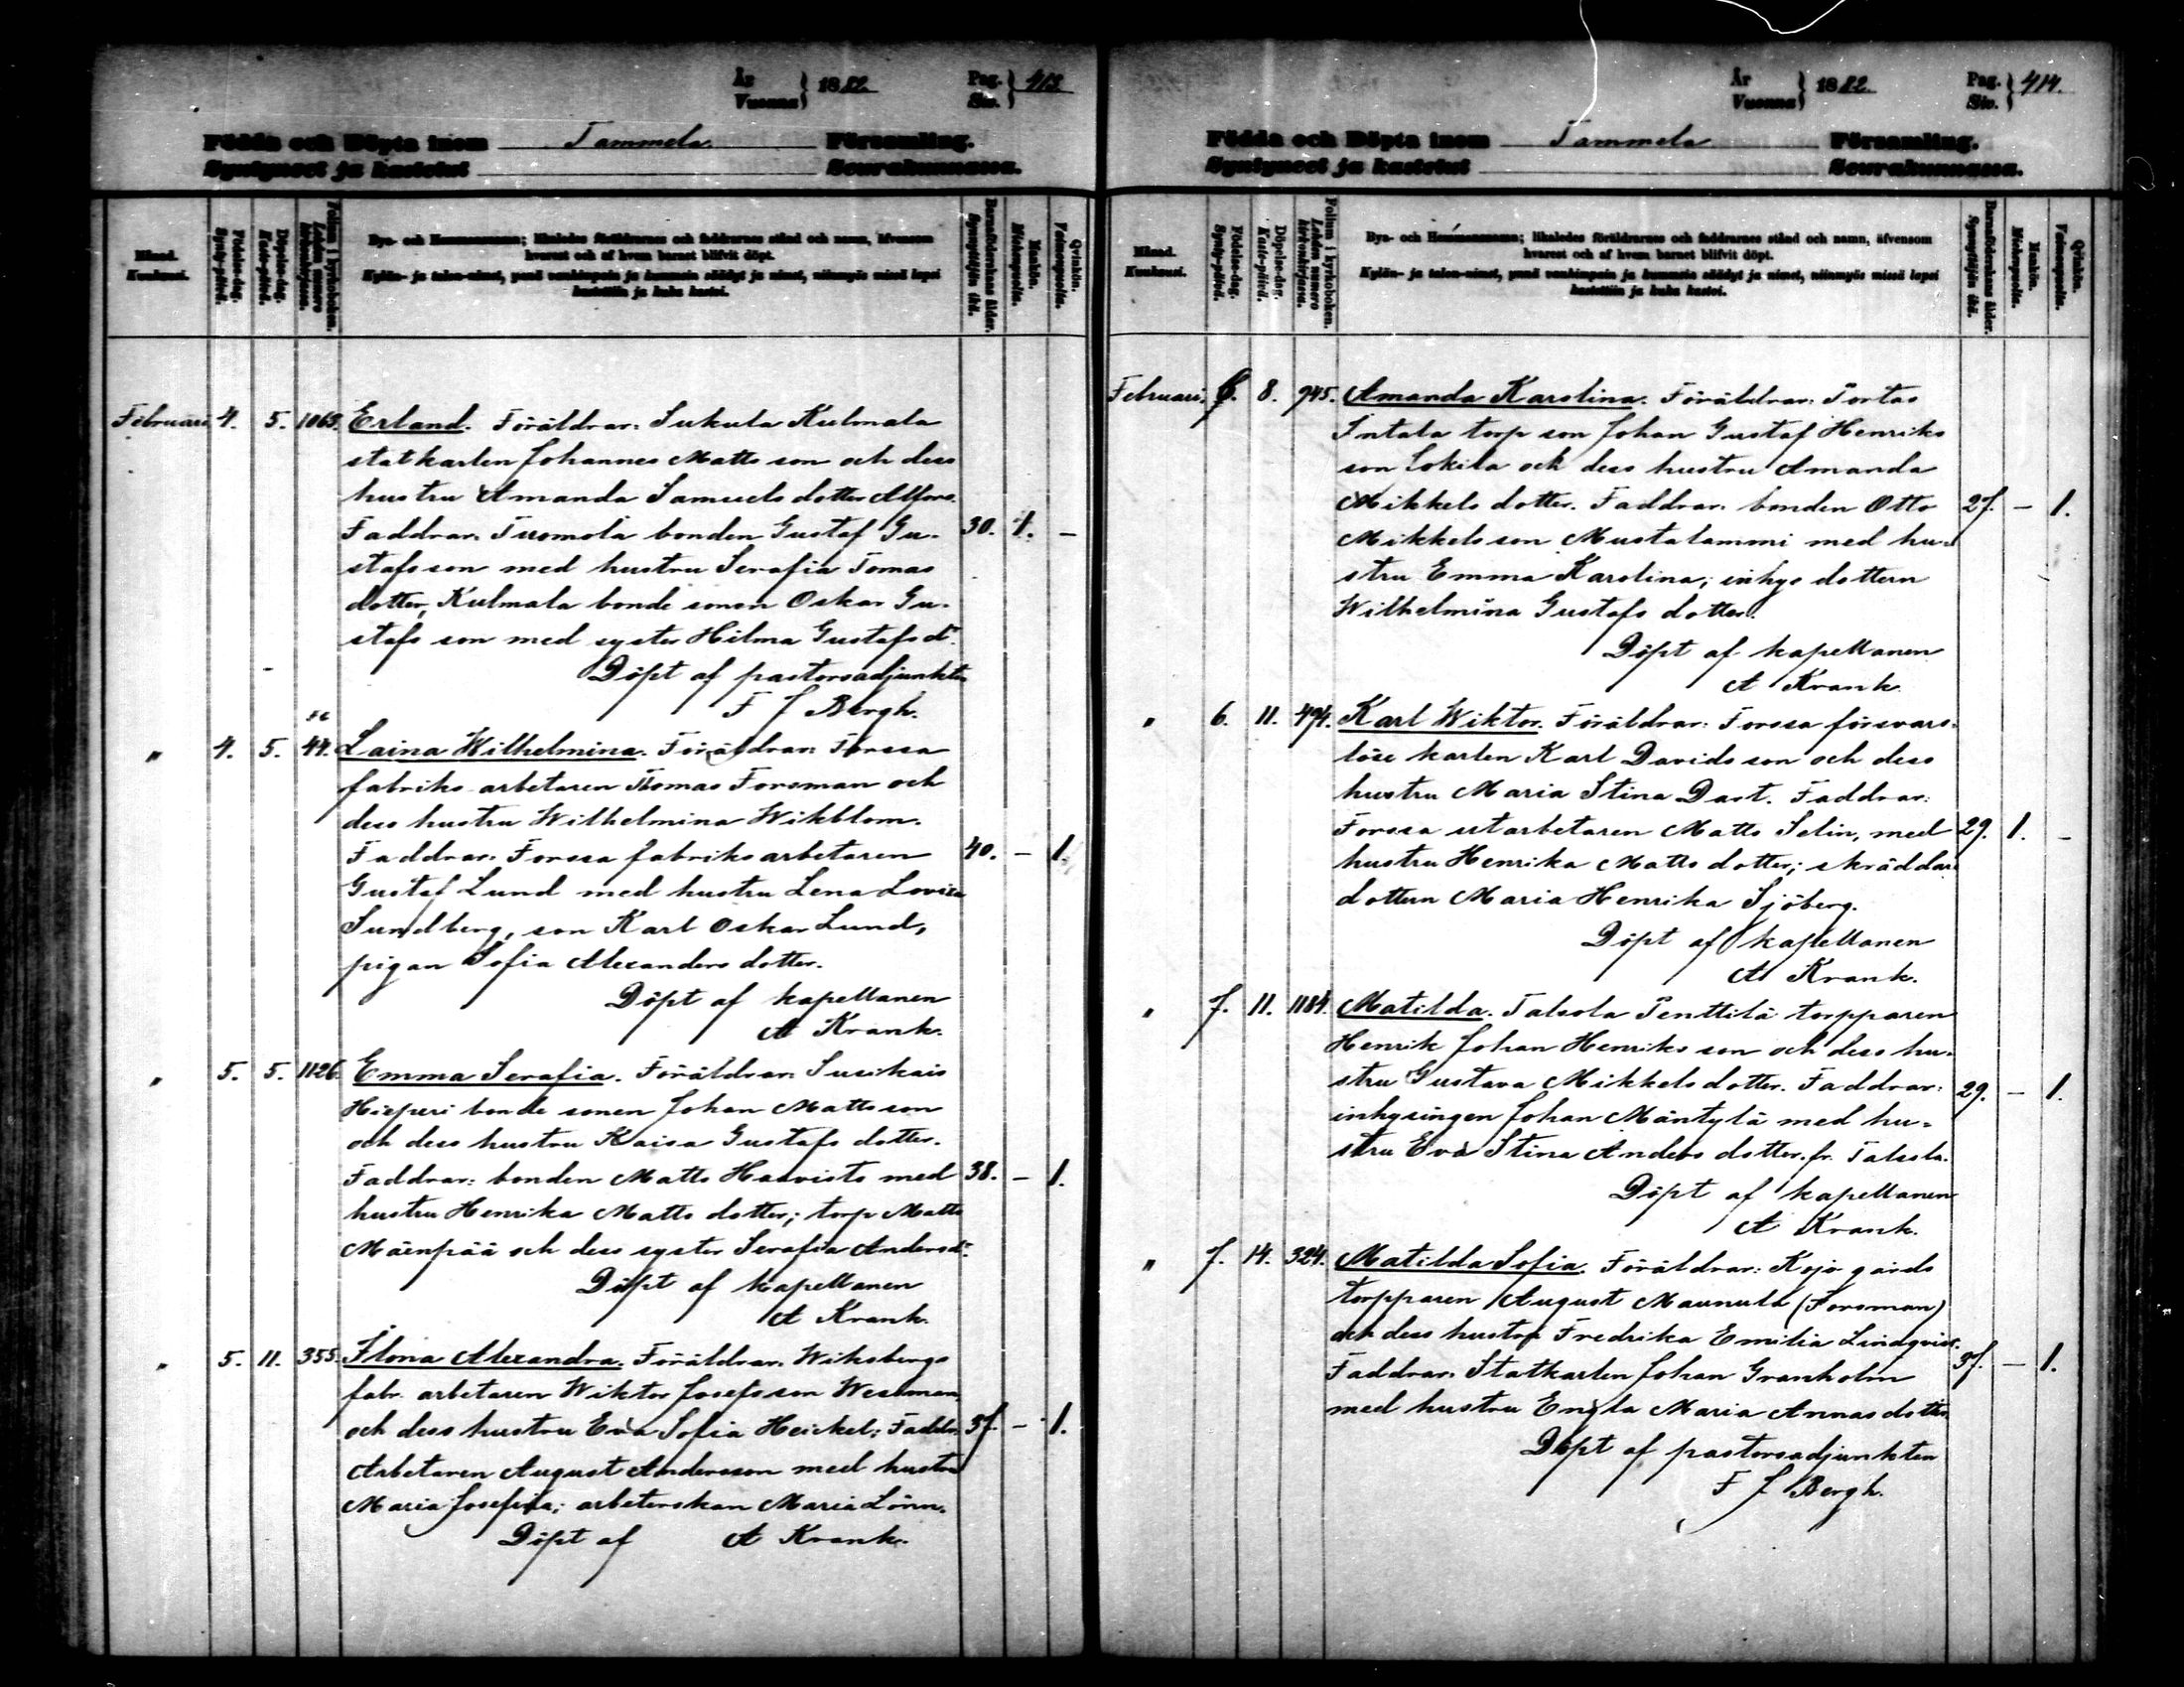 År
Vuonna } 1882
Pag.
Siv. } 413
Födda och Döpta inom Tammela Församling.
Syntyneet ja kastetut Seurakunnassa.
Månad.
Kuukausi.
Födelse-dag.
Synty-päivä.
Döpelse-dag.
Kaste-päivä.
Folium i kyrkoboken.
Lehden numero kirkonkirjassa.
Bya- och Hemmansnamn; likaledes föräldrarnes och faddrarnes stånd och namn, äfvensom
hvarest och af hvem barnet blifvit döpt.
Kylän- ja talon-nimet, ynnä vanhimpain ja kummein säädyt ja nimet, niinmyös missä lapsi
kastettiin ja kuka kastoi.
Barnaföderskans ålder.
Synnyttäjän ikä.
Mankön.
Miehenpuolta.
Qvinkön.
Vaimonpuolta.
Februari 4. 5. 1063. Erland. Föräldrar: Sukula Kulmala
statkarlen Johannes Matts son och dess
hustru Amanda Samuels dotter Alfors.
Faddrar: Tuomola bonden Gustaf Gu- 30. 1. -
stafs son med hustru Serafia Tomas
dotter, Kulmala bonde sonen Oskar Gu-
stafs son med syster Hilma Gustafs dr.
Döpt af pastorsadjunkten
F J Bergh.
" 4. 5. 44. Laina Wilhelmina. Föräldrar: Forssa
fabriks arbetaren Thomas Forsman och
dess hustru Wilhelmina Wikblom.
Faddrar: Forssa fabriks arbetaren 40. - 1.
Gustaf Lund med hustru Lena Lovisa
Sundberg, son Karl Oskar Lund,
pigan Sofia Alexanders dotter.
Döpt af kapellanen
A Krank.
" 5. 5. 1126. Emma Serafia. Föräldrar: Susikais
Hieperi bonde sonen Johan Matts son
och dess hustru Kaisa Gustafs dotter.
Faddrar: bonden Matts Haavisto med 38. - 1.
hustru Henrika Matts dotter; torp Matts
Mäenpää och dess syster Serafia Anders dr.
Döpt af kapellanen
A Krank.
" 5. 11. 355. Ilona Alexandra. Föräldrar: Wiksbergs
fabr. arbetaren Wiktor Josefs son Wessman
och dess hustru Eva Sofia Heickel; Faddr. 37. - 1.
Arbetaren August Andersson med hustru
Maria Josefina; arbeterskan Maria Lönn.
Döpt af A Krank.
År
Vuonna } 1882.
Pag.
Siv. } 414.
Födda och Döpta inom Tammela Församling.
Syntyneet ja kastetut Seurakunnassa.
Månad.
Kuukausi.
Födelse-dag.
Synty-päivä.
Döpelse-dag.
Kaste-päivä.
Folium i kyrkoboken.
Lehden numero kirkonkirjassa.
Bya- och Hemmansnamn; likaledes föräldrarnes och faddrarnes stånd och namn, äfvensom
hvarest och af hvem barnet blifvit döpt.
Kylän- ja talon-nimet, ynnä vanhimpain ja kummein säädyt ja nimet, niinmyös missä lapsi
kastettiin ja kuka kastoi.
Barnaföderskans ålder.
Synnyttäjän ikä.
Mankön.
Miehenpuolta.
Qvinkön.
Vaimonpuolta.
Februari. 6. 8. 945. Amanda Karolina. Föräldrar: Tortas
Intala torp son Johan Gustaf Henriks
son Lokila och dess hustru Amanda
Mikkels dotter. Faddrar: bonden Otto 27. - 1.
Mikkels son Mustalammi med hu-
stru Emma Karolina; inhys dottern
Wilhelmina Gustafs dotter.
Döpt af kapellanen
A Krank.
" 6. 11. 494. Karl Wiktor. Föräldrar: Forssa försvars-
löse karlen Karl Davids son och dess
hustru Maria Stina Dast. Faddrar:
Forssa utarbetaren Matts Selin, med 29. 1. -
hustru Henrika Matts dotter; skräddar
dottern Maria Henrika Sjöberg.
Döpt af kapellanen
A Krank.
" 7. 11. 1184. Matilda. Talsola Penttilä torpparen
Henrik Johan Henriks son och dess hu-
stru Gustava Mikkels dotter. Faddrar: 29. - 1.
inhysingen Johan Mäntylä med hu-
stru Eva Stina Anders dotter. fr. Talsola.
Döpt af kapellanen
A Krank.
" 7. 14. 324. Matilda Sofia. Föräldrar: Kojo gårds
torpparen August Maunula (Forsman)
och dess hustru Fredrika Emilia Lindqvist.
Faddrar: Statkarlen Johan Granholm 37. - 1.
med hustru Engla Maria Annas dotter
Döpt af pastorsadjunkten
F J Bergh.